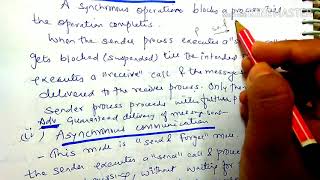 A synchronous operations blocks a process till
the operation completes.
When the sender process executes a "s
gets blocked (suspended) till the intended
executes a "receive" call & the messages
delivered to the receiver process. Only then
Sender process proceeds with further p
Adv. Guaranteed delivery of message sent
(ii) Asynchronous communication
- This mode is a "send & forget" mode.
the sender executes a "send" call & proceeds
without waiting for